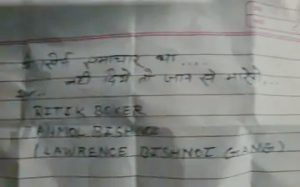 समाचार था....
नही दिये तो जान से मारेंगे...
RITIK BOXER
ANMOL BISHNOI
(LAWRENCE BISHNOI GANG)